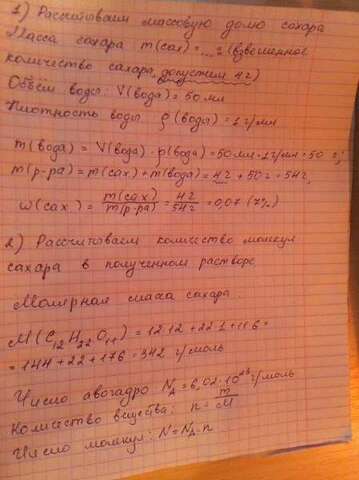 1) Рассчитываем массовую долю сахара
Масса сахара m(сах) = ... г (взвешенное
количество сахара, допустим 4г)
Объём воды: V(вода) = 50 мл
Плотность воды ρ(воды) = 1 г/мл
m(вода) = V(вода) · ρ(воды) = 50 мл · 1 г/мл = 50 г;
m(р-ра) = m(сах) + m(вода) = 4г + 50г = 54г,
ω(сах) = m(сах)/m(р-ра) = 4г/54г = 0,07 (7%)
2) Рассчитываем количество молекул
сахара в полученном растворе
Молярная масса сахара.
M(C₁₂H₂₂O₁₁) = 12·12 + 22·1 + 11·6 =
= 144 + 22 + 176 = 342 г/моль
Число авогадро N_A = 6,02·10²³ г/моль
Количество вещества: n = m/M
Число молекул: N = N_A · n